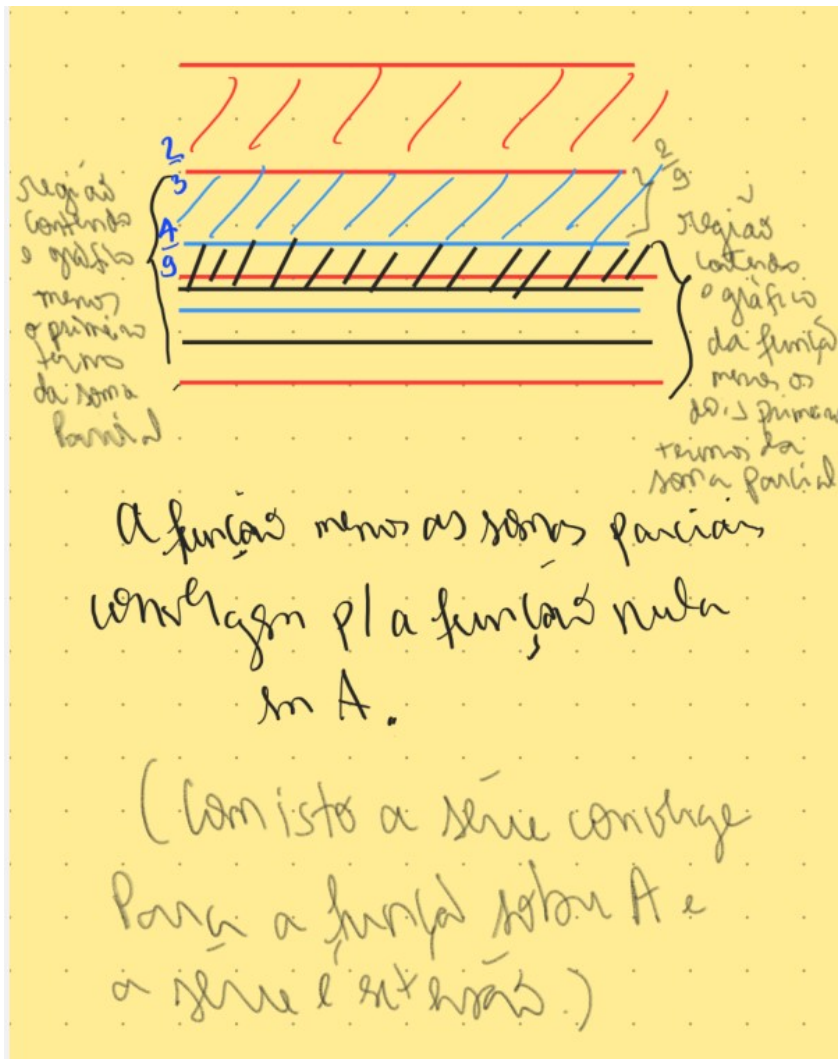 2
3
4
9
2
9
região
contendo
o gráfico
menos
o primeiro
termo
da soma
Parcial
região
contendo
o gráfico
da função
menos os
dois primeiros
termos da
soma parcial
A função menos as somas parciais
convergem p/ a função nula
em A.
(Com isto a série converge
Para a função sobre A e
a série é extensão.)